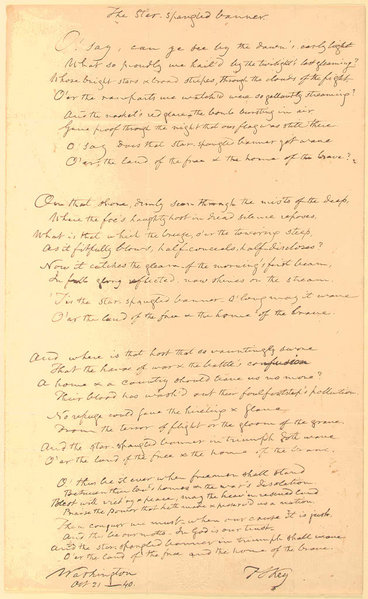 The Star-spangled banner.
O! say, can ye see by the dawn's early light
What so proudly we hail'd by the twilight's last gleaming?
Whose bright stars & broad stripes, through the clouds of the fight
O'er the ramparts we watch'd were so gallantly streaming?
And the rocket's red glare, the bomb bursting in air
Gave proof through the night that our flag was still there
O! say does that star-spangled banner yet wave
O'er the land of the free & the home of the brave?
On that shore, dimly seen through the mists of the deep,
Where the foe's haughty host in dread silence reposes,
What is that which the breeze, o'er the towering steep,
As it fitfully blows, half conceals, half discloses?
Now it catches the gleam of the morning's first beam,
In full glory reflected, now shines on the stream
'Tis the star-spangled banner. O! long may it wave
O'er the land of the free & the home of the brave.
And where is that host that so vauntingly swore
That the havoc of war & the battle's confusion
A home & a country should leave us no more?
Their blood has wash'd out their foul footsteps' pollution.
No refuge could save the hireling & slave
From the terror of flight or the gloom of the grave.
And the star-spangled banner in triumph doth wave
O'er the land of the free & the home of the brave.
O! thus be it ever when freemen shall stand
Between their lov'd homes & the war's desolation.
Blest with vict'ry & peace, may the heav'n rescued land
Praise the power that hath made & preserv'd us a nation.
Then conquer we must, when our cause it is just.
And this be our motto - In God is our trust.
And the star-spangled banner in triumph shall wave
O'er the land of the free and the home of the brave.
Washington
Oct 21 - 40.
F S Key